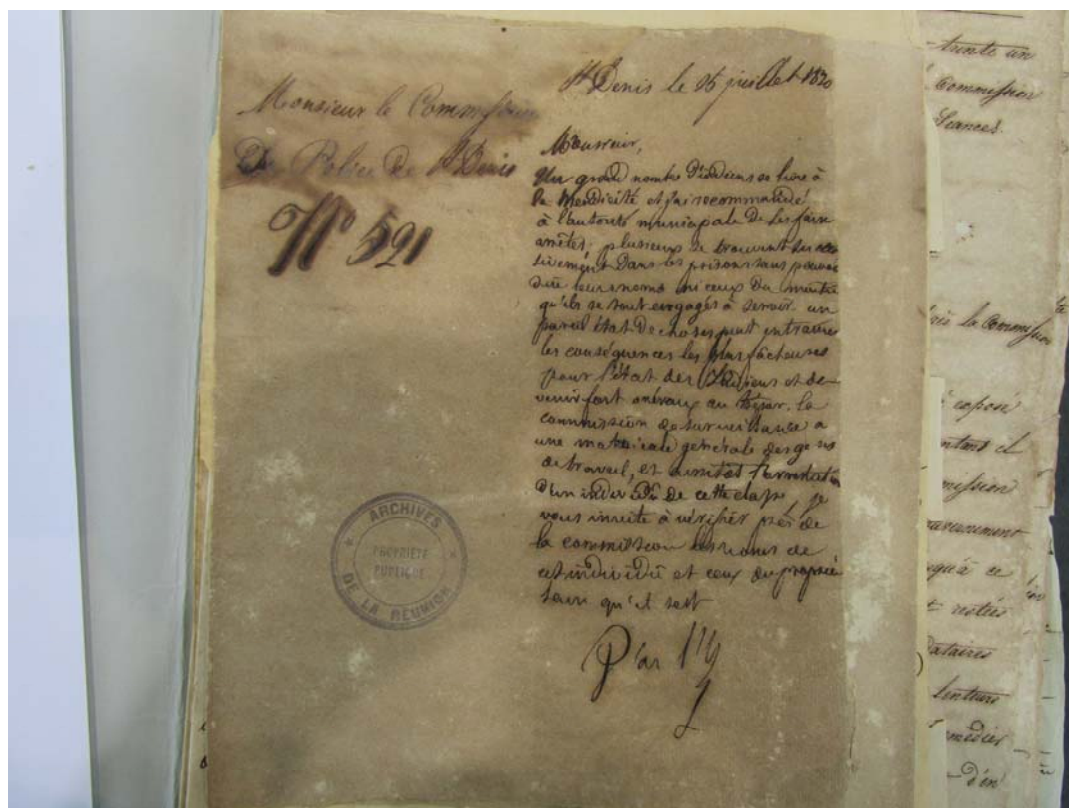 Monsieur le Commissaire
De Police de St Denis
No 521
St Denis le 26 juillet 1830
Monsieur,
Un grand nombre d'indiens se livre à
la Mendicité et j'ai recommandé
à l'autorité municipale de les faire
arrêter; plusieurs se trouvent succes
sivement dans les prisons sans pouvoir
dire leurs noms ni ceux du maitre
qu'ils se sont engagés à servir. un
pareil état de choses peut entrainer
les conséquences les plus fâcheuses
pour l'état des Indiens et de-
venir fort onéreux au trésor. la
commission de surveillance a
une matricule générale des gens
de travail, et aussitôt l'arrestation
d'un individu de cette classe, je
vous invite à vérifier près de
la commission les noms de
cet individu et ceux du proprié
taire qu'il sert
ARCHIVES
PROPRIÉTÉ
PUBLIQUE
DE LA RÉUNION
trente un
Commission
Séances.
la Commission
exposé
il
mission
gouvernement
ce
restées
lenteurs
remédier
d'en